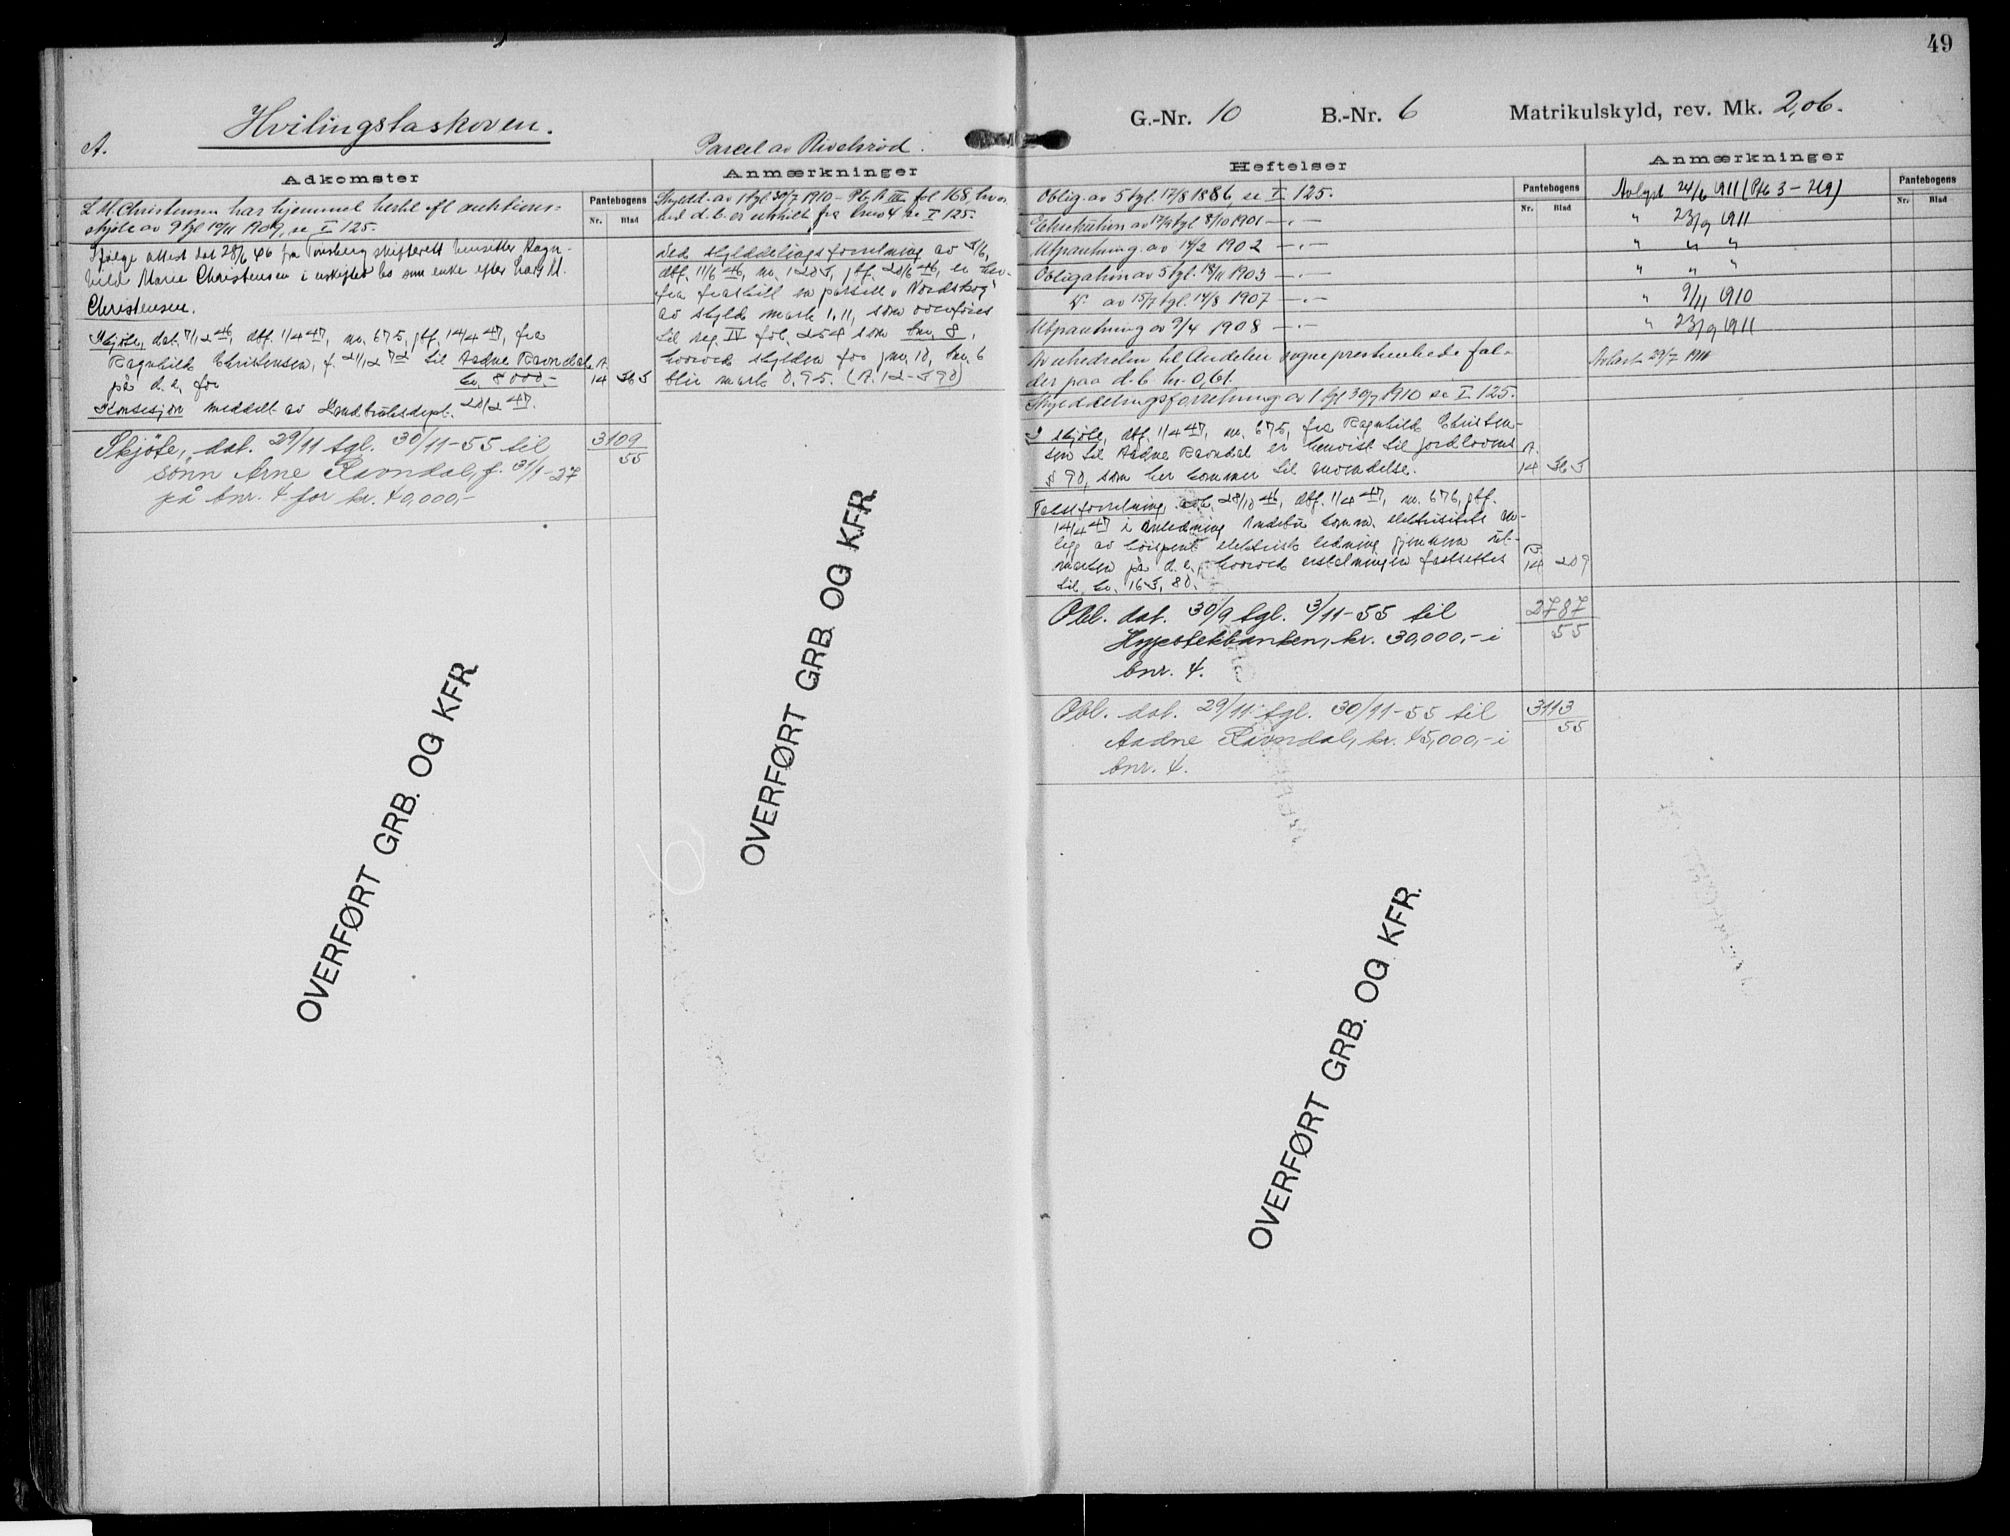 49
Hvilingstaskoven.
A.
Parcel av
G.-Nr. 10 B.-Nr. 6 Matrikulskyld, rev. Mk. 2,06.
Adkomster
Pantebogens
Nr. Blad
L. M. Christensen har hjemmel hertil efl auktions-
skjøte av 9 tgl 10/11 1909, se I 125.
Ifølge attest dat 28/6 46 fra Tønsberg skifterett hensitter Ragn-
hild Marie Christensen i uskiftet bo som enke efter Lars M.
Christensen.
Skjøte, dat. 7/12 46, dbf. 1/4 47, nr. 675, gtf. 14/4 47, fra
Ragnhild Christensen, f. 21/12 72 til Aadne Ravndal A.
på d. e. for kr. 8000.- 14 365
Konsesjon meddelt av Landbruksdept. 20/2 47.
Skjøte, dat. 29/11 tgl. 30/11-55 til 3109
sønn Arne Ravndal, f. 31/1-27 55
på bnr. 4 for kr. 40,000,-
OVERFØRT GRB. OG KFR.
Anmærkninger
Skyldd. av 1 tgl 30/7 1910 - Pb. A III fol 168, hvor
ved d. b. er utskilt fra bno 4 se I 125.
Ved skylddelingsforretning av 5/6,
dbf. 11/6 46, nr. 1205, gtf. 20/6 46, er her-
fra fraskilt en parsell "Nordskog"
av skyld mark 1,11, som overføres
til reg. IV fol. 254 som bnr. 8,
hvorved skylden for gnr. 10, bnr. 6
blir mark 0,95. (A. 12-590)
OVERFØRT GRB. OG KFR.
Heftelser
Pantebogens
Nr. Blad
Anmærkninger
Pantebogens
Nr. Blad
Oblig. av 5 tgl. 17/8 1886 se I 125. Avlyst 24/6 1911 (Pb 3-219)
Eksekution av 17/9 tgl 8/10 1901 -"- " 23/9 1911
Utpantning av 14/2 1902 -"- " " "
Obligation av 5 tgl. 18/11 1903 -"- " " "
D: av 15/7 tgl. 14/8 1907 -"- " 9/11 1910
Utpantning av 9/4 1908 -"- " 23/9 1911
Avhedrelsen til Andebu sogneprestembede fal-
der paa d. b. kr. 0,61. Avløst 29/7
Skylddelingsforretning av 1 tgl 30/7 1910 se I. 125.
I skjøte, dbf. 1/4 47, nr. 675, fra Ragnhild Christen-
sen til Aadne Ravndal er henvist til jordlovens A.
§ 90, som her kommer til anvendelse. 14 365
Takstforretning avh. 28/10 46, dbf. 1/4 47, nr. 676, gtf.
14/4 47 i anledning Andebu komm. elektrisitets an-
legg av høispent elektrisk ledning gjennem ut-
marken på d. e., hvorved erstatningen fastsettes B 14 209
til kr. 165,80.
Obl. dat. 30/9 tgl. 3/11-55 til 2787
Hypotekbanken, kr. 30,000,- i 55
bnr. 4.
Obl. dat. 29/11 tgl. 30/11-55 til 3113
Aadne Ravndal, kr. 15,000,- i 55
bnr. 4.
OVERFØRT GRB. OG KFR.